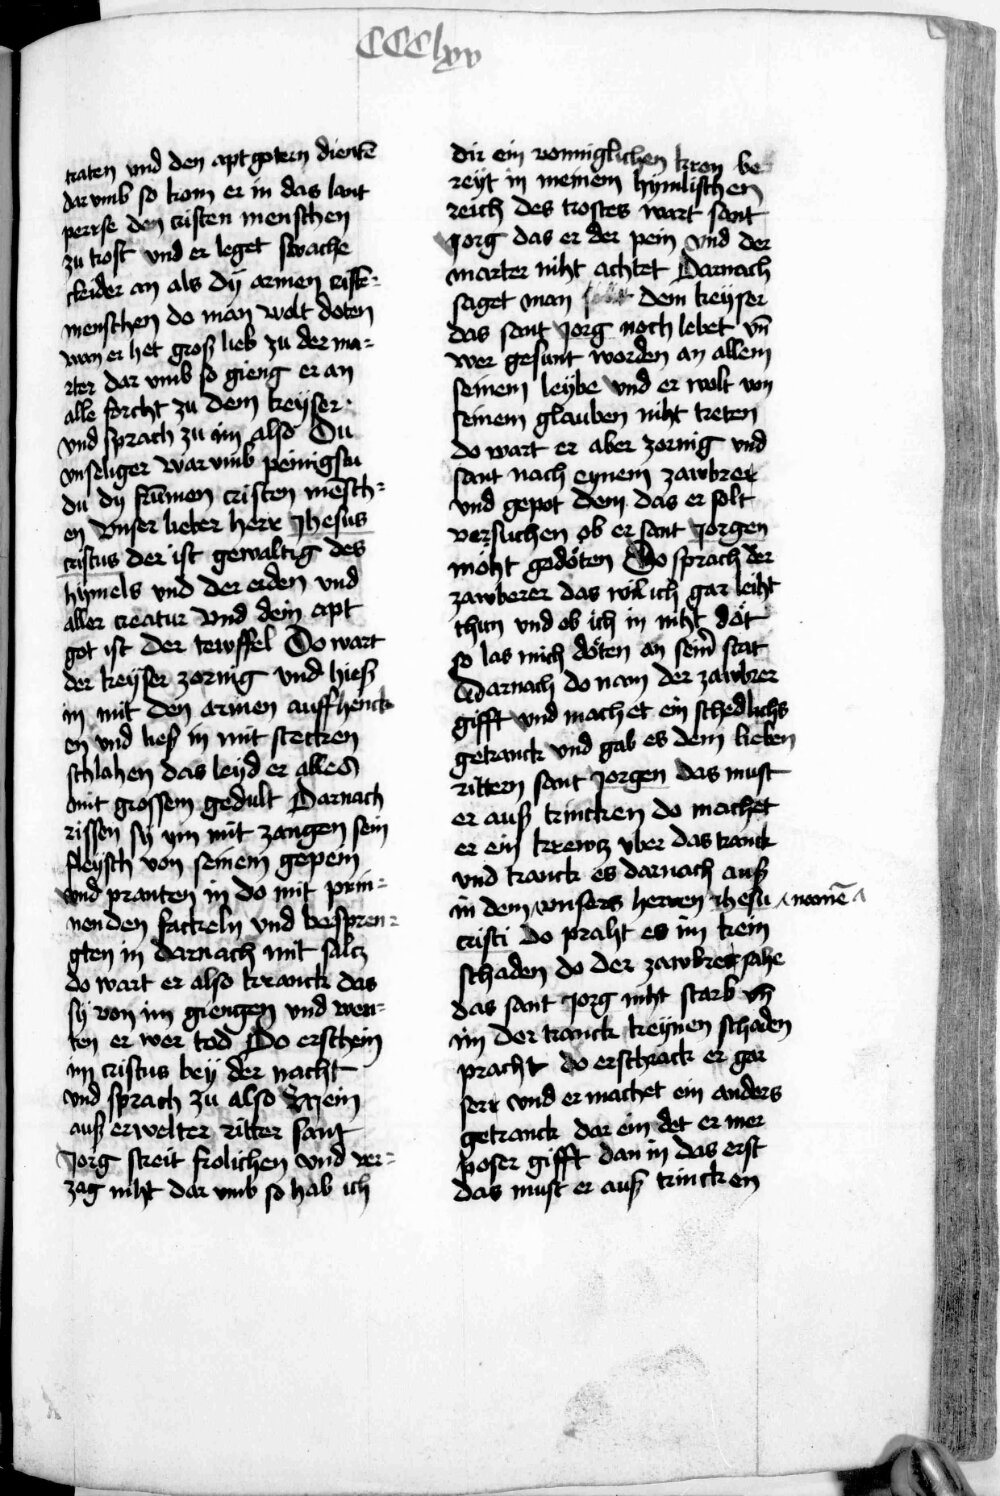 CCClxv
traten vnd den aptgotern dientē
dar vmb so kom er in das lant
perrse den cristen menschen
zu trost vnd er leget swache
cleider an als dÿ armen cristē=
menschen do man wolt doten
wan er het groß lieb zu der ma=
rter dar vmb so gieng er an
alle forcht zu dem keÿser
vnd sprach zu im also Du
vnseliger war vmb peinigstu
du dÿ frūmen cristen mēsch=
en Vnser lieber herr Jhesus
cristus der ist gewaltig des
hÿmels vnd der erden vnd
aller creatur Vnd dein apt
got ist der tewffel Do wart
der keÿser zornig vnd hieß
in mit den armen auff henck
en vnd ließ in mit stecken
schlahen das leÿd er alles
mit grossem gedult Darnach
rissen sÿ ym mit zangen sein
fleÿsch von seinem gepein
vnd pranten in do mit prin=
nenden fackeln vnd bespren=
gten in darnach mit saltz
do wart er also kranck das
sÿ von im giengen vnd wen=
ten er wer tod Do erschein
im cristus beÿ der nacht
vnd sprach zu also Mein
auß erwelter ritter sant
Jorg streit frolichen vnd ver=
zag niht dar vmb so hab ich
dir ein wonniglichen kron be
reÿt in meinem hÿmlischen
reich des trostes wart sant
Jorg das er der pein vnd der
marter niht achtet Darnach
saget man dem keÿser
das sant Jorg noch lebet vn̄
wer gesunt worden an allem
seinem leÿbe vnd er wolt von
seinem glauben niht treten
do wart er aber zornig vnd
sant nach eynem zawbrer
vnd gepot dem das er solt
versuchen ob er sant Jorgen
möht gedöten Do sprach der
zawberer das wil ich gar leiht
thun vnd ob ich in niht döt
so las mich döten an sein̄ stat
Darnach do nam der zawbrer
gifft vnd machet ein schedlichs
getranck vnd gab es dem lieben
rittern sant Jorgen das must
er auß trincken do machet
er ein krewtz vber das tranck
vnd tranck es darnach auß
in dem vnsers herren Jhesu ^ namē ^
cristi do praht es im kein
schaden do der zawbrer sahe
das sant Jorg niht starb vn̄
im der tranck keÿnen schaden
pracht do erschrack er gar
serr vnd er machet ein anders
getranck dar ein det er mer
poser gifft dan in das erst
das must er auß trincken